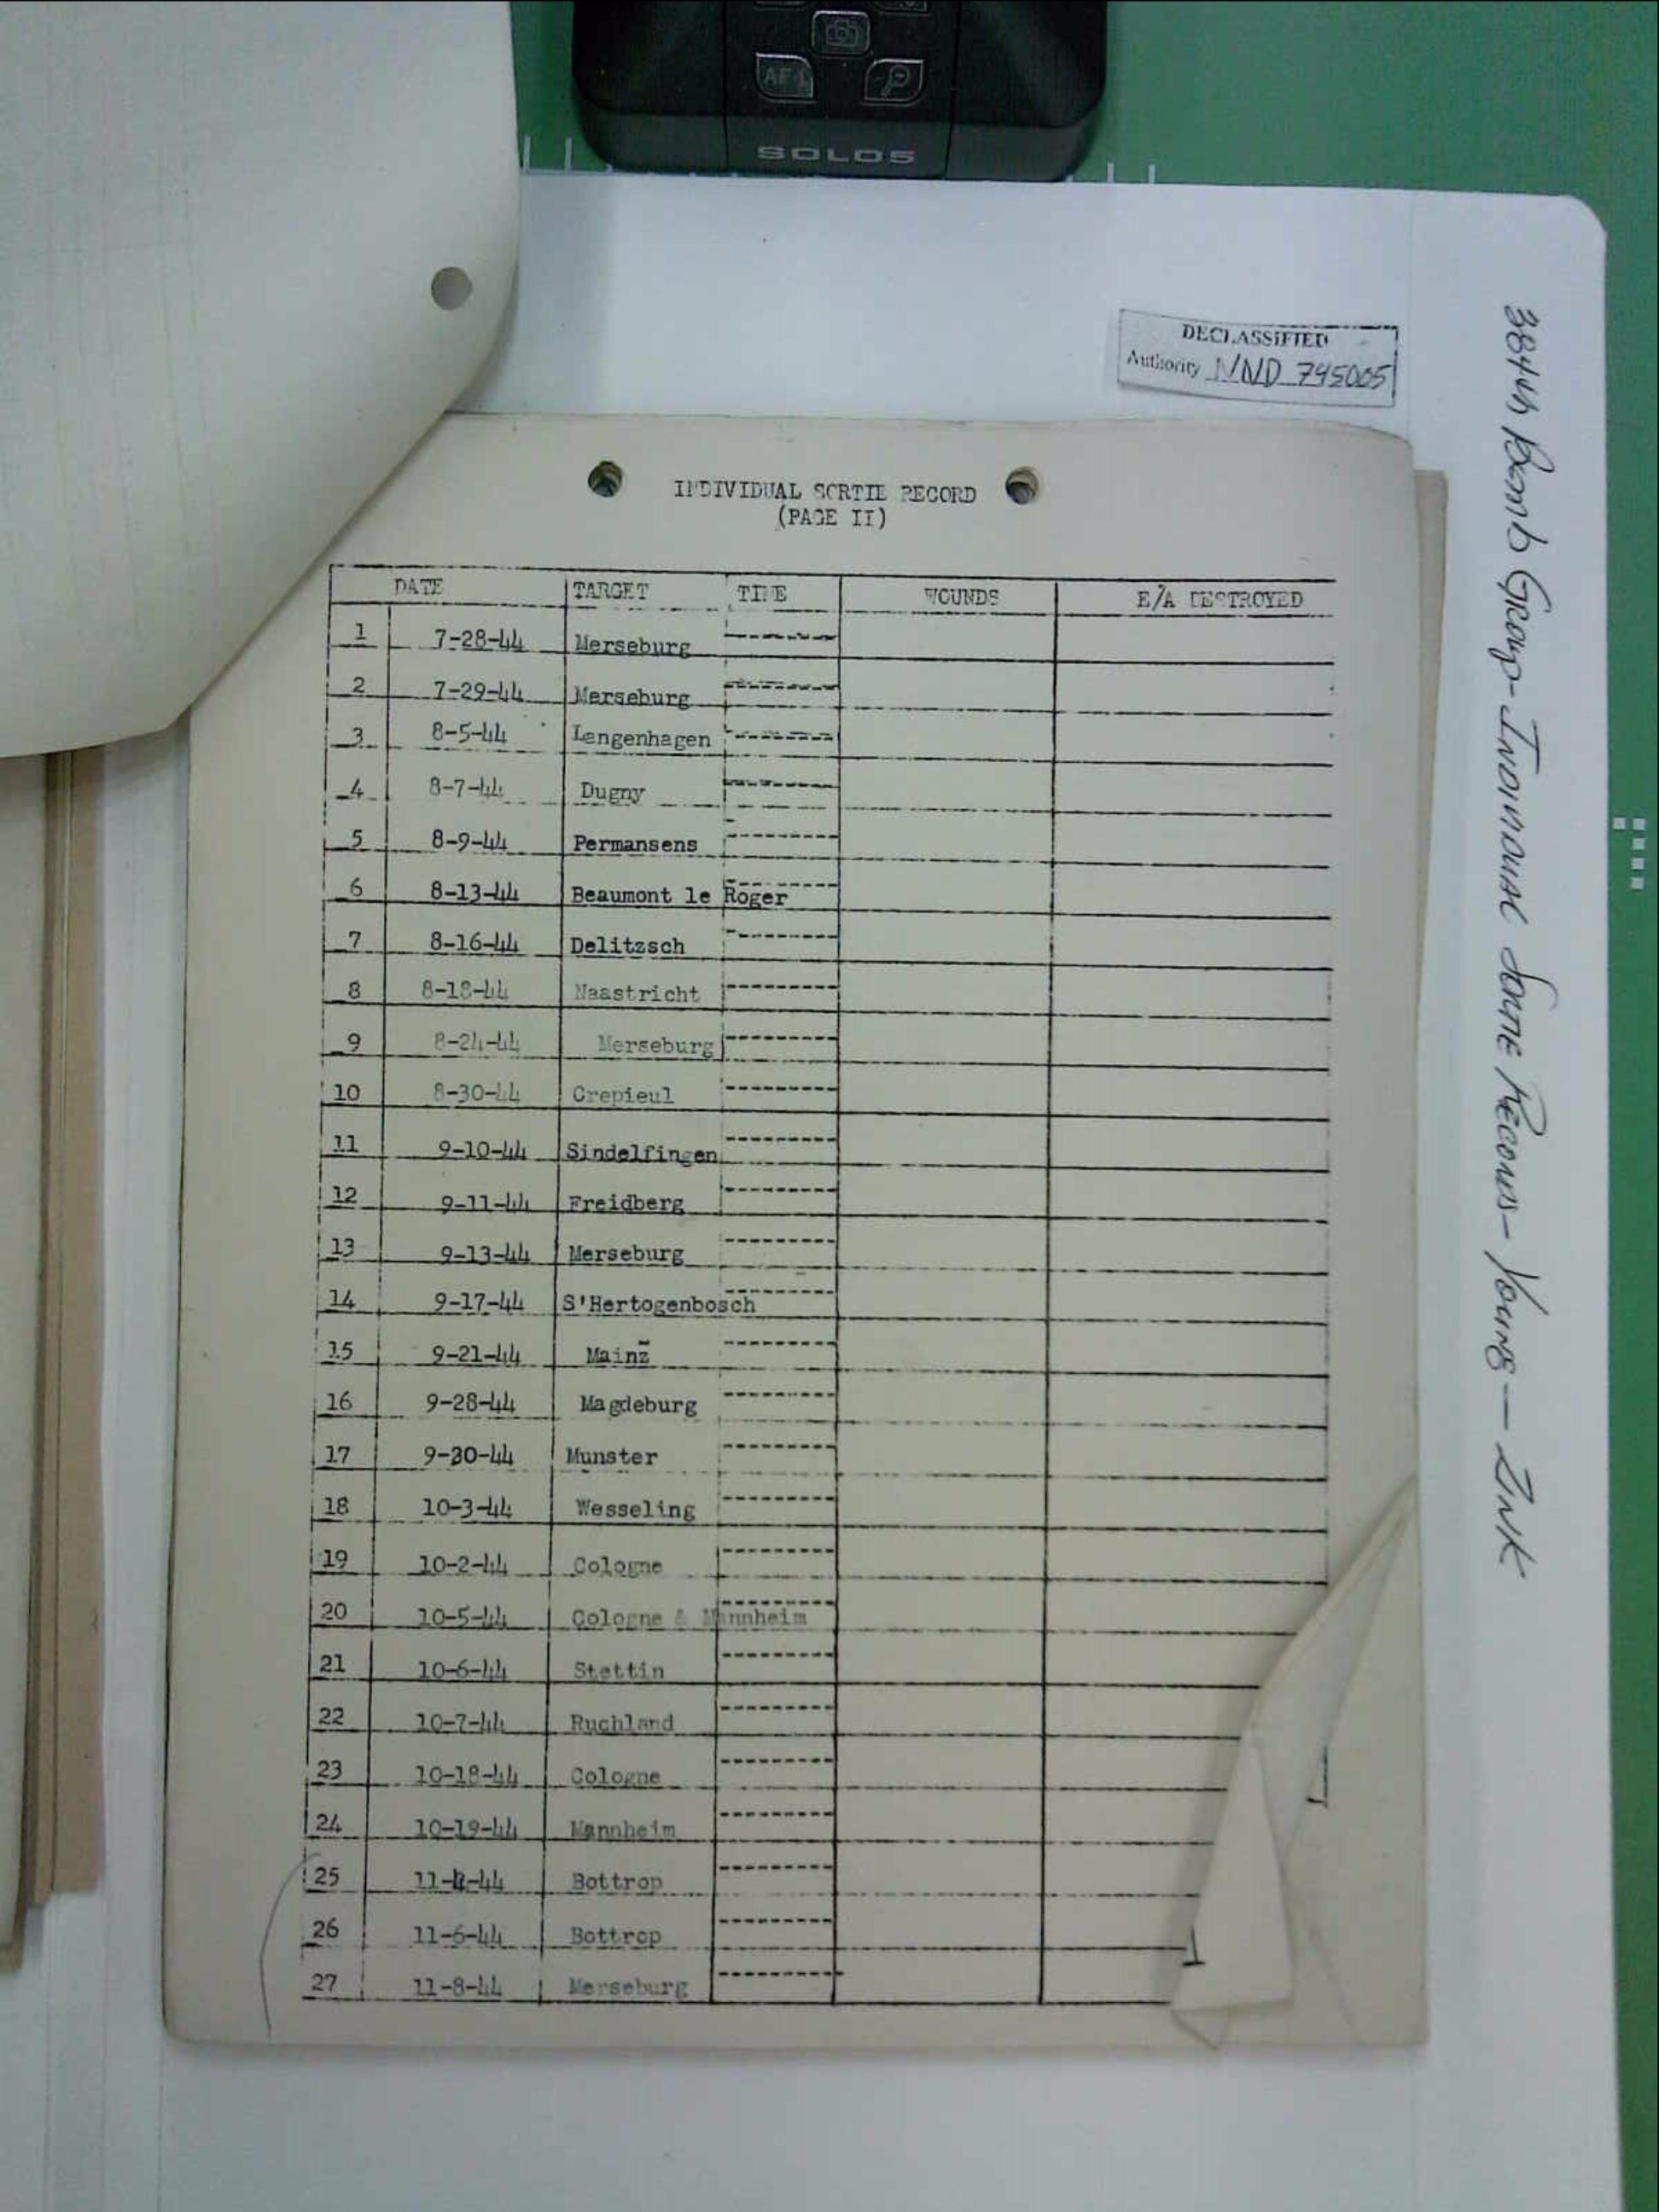 AF-L
SOLO5
DECLASSIFIED
Authority NND 745005
INDIVIDUAL SORTIE RECORD
(PAGE II)
DATE TARGET TIME WOUNDS E/A DESTROYED
1 7-28-44 Merseburg
2 7-29-44 Merseburg
3 8-5-44 Langenhagen
4 8-7-44 Dugny
5 8-9-44 Permansens
6 8-13-44 Beaumont le Roger
7 8-16-44 Delitzsch
8 8-18-44 Naastricht
9 8-24-44 Merseburg
10 8-30-44 Crepieul
11 9-10-44 Sindelfingen
12 9-11-44 Freidberg
13 9-13-44 Merseburg
14 9-17-44 S'Hertogenbosch
15 9-21-44 Mainz
16 9-28-44 Magdeburg
17 9-30-44 Munster
18 10-3-44 Wesseling
19 10-2-44 Cologne
20 10-5-44 Cologne & Mannheim
21 10-6-44 Stettin
22 10-7-44 Ruchland
23 10-18-44 Cologne
24 10-19-44 Mannheim
25 11-4-44 Bottrop
26 11-6-44 Bottrop
27 11-8-44 Merseburg
384th Bomb Group - Individual Sortie Records - Young - Zink